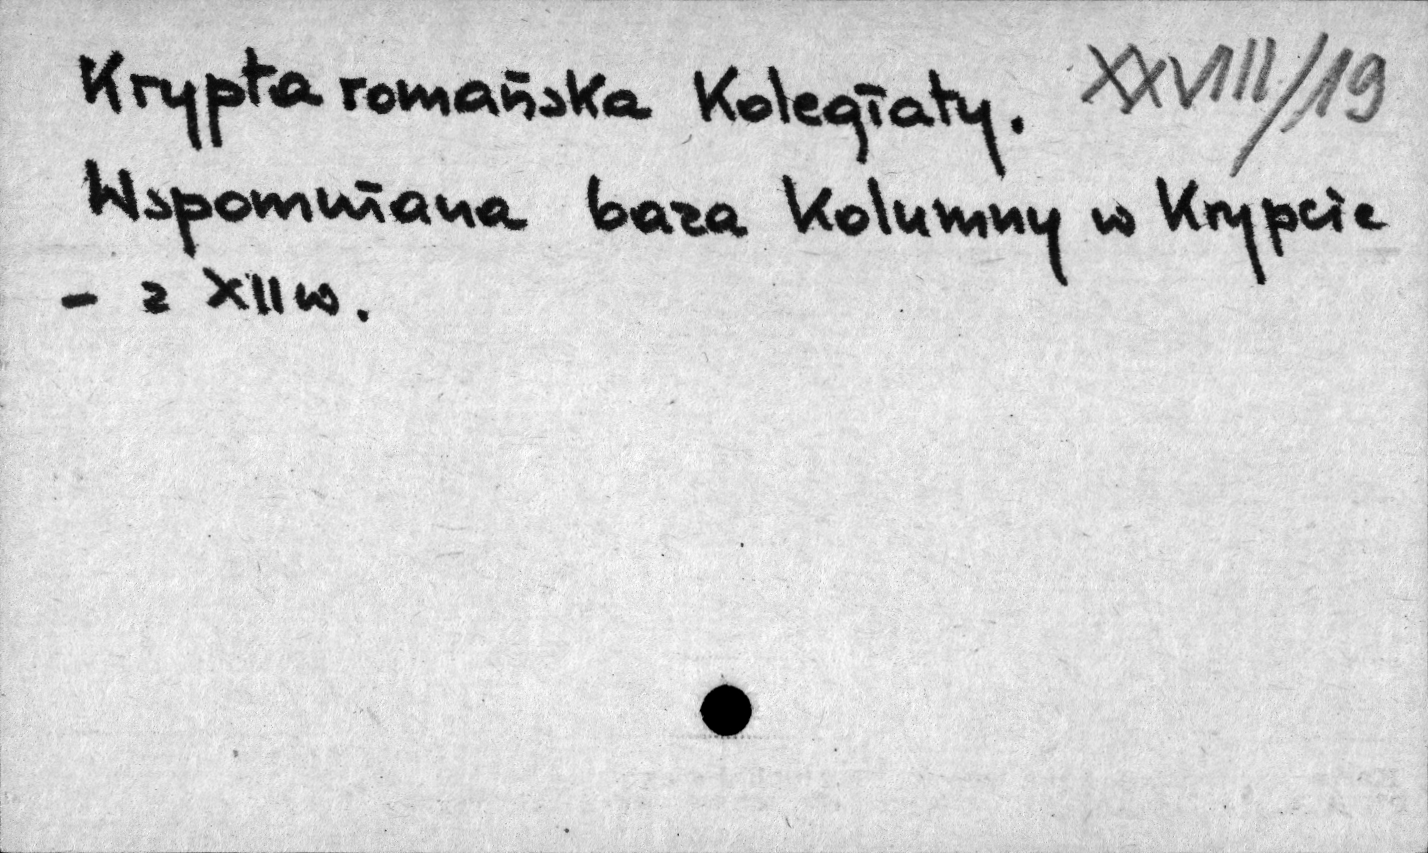 Krypta romańska Kolegiaty. XXVIII/19
Wspomniana baza Kolumny w Krypcie
- z XII w.